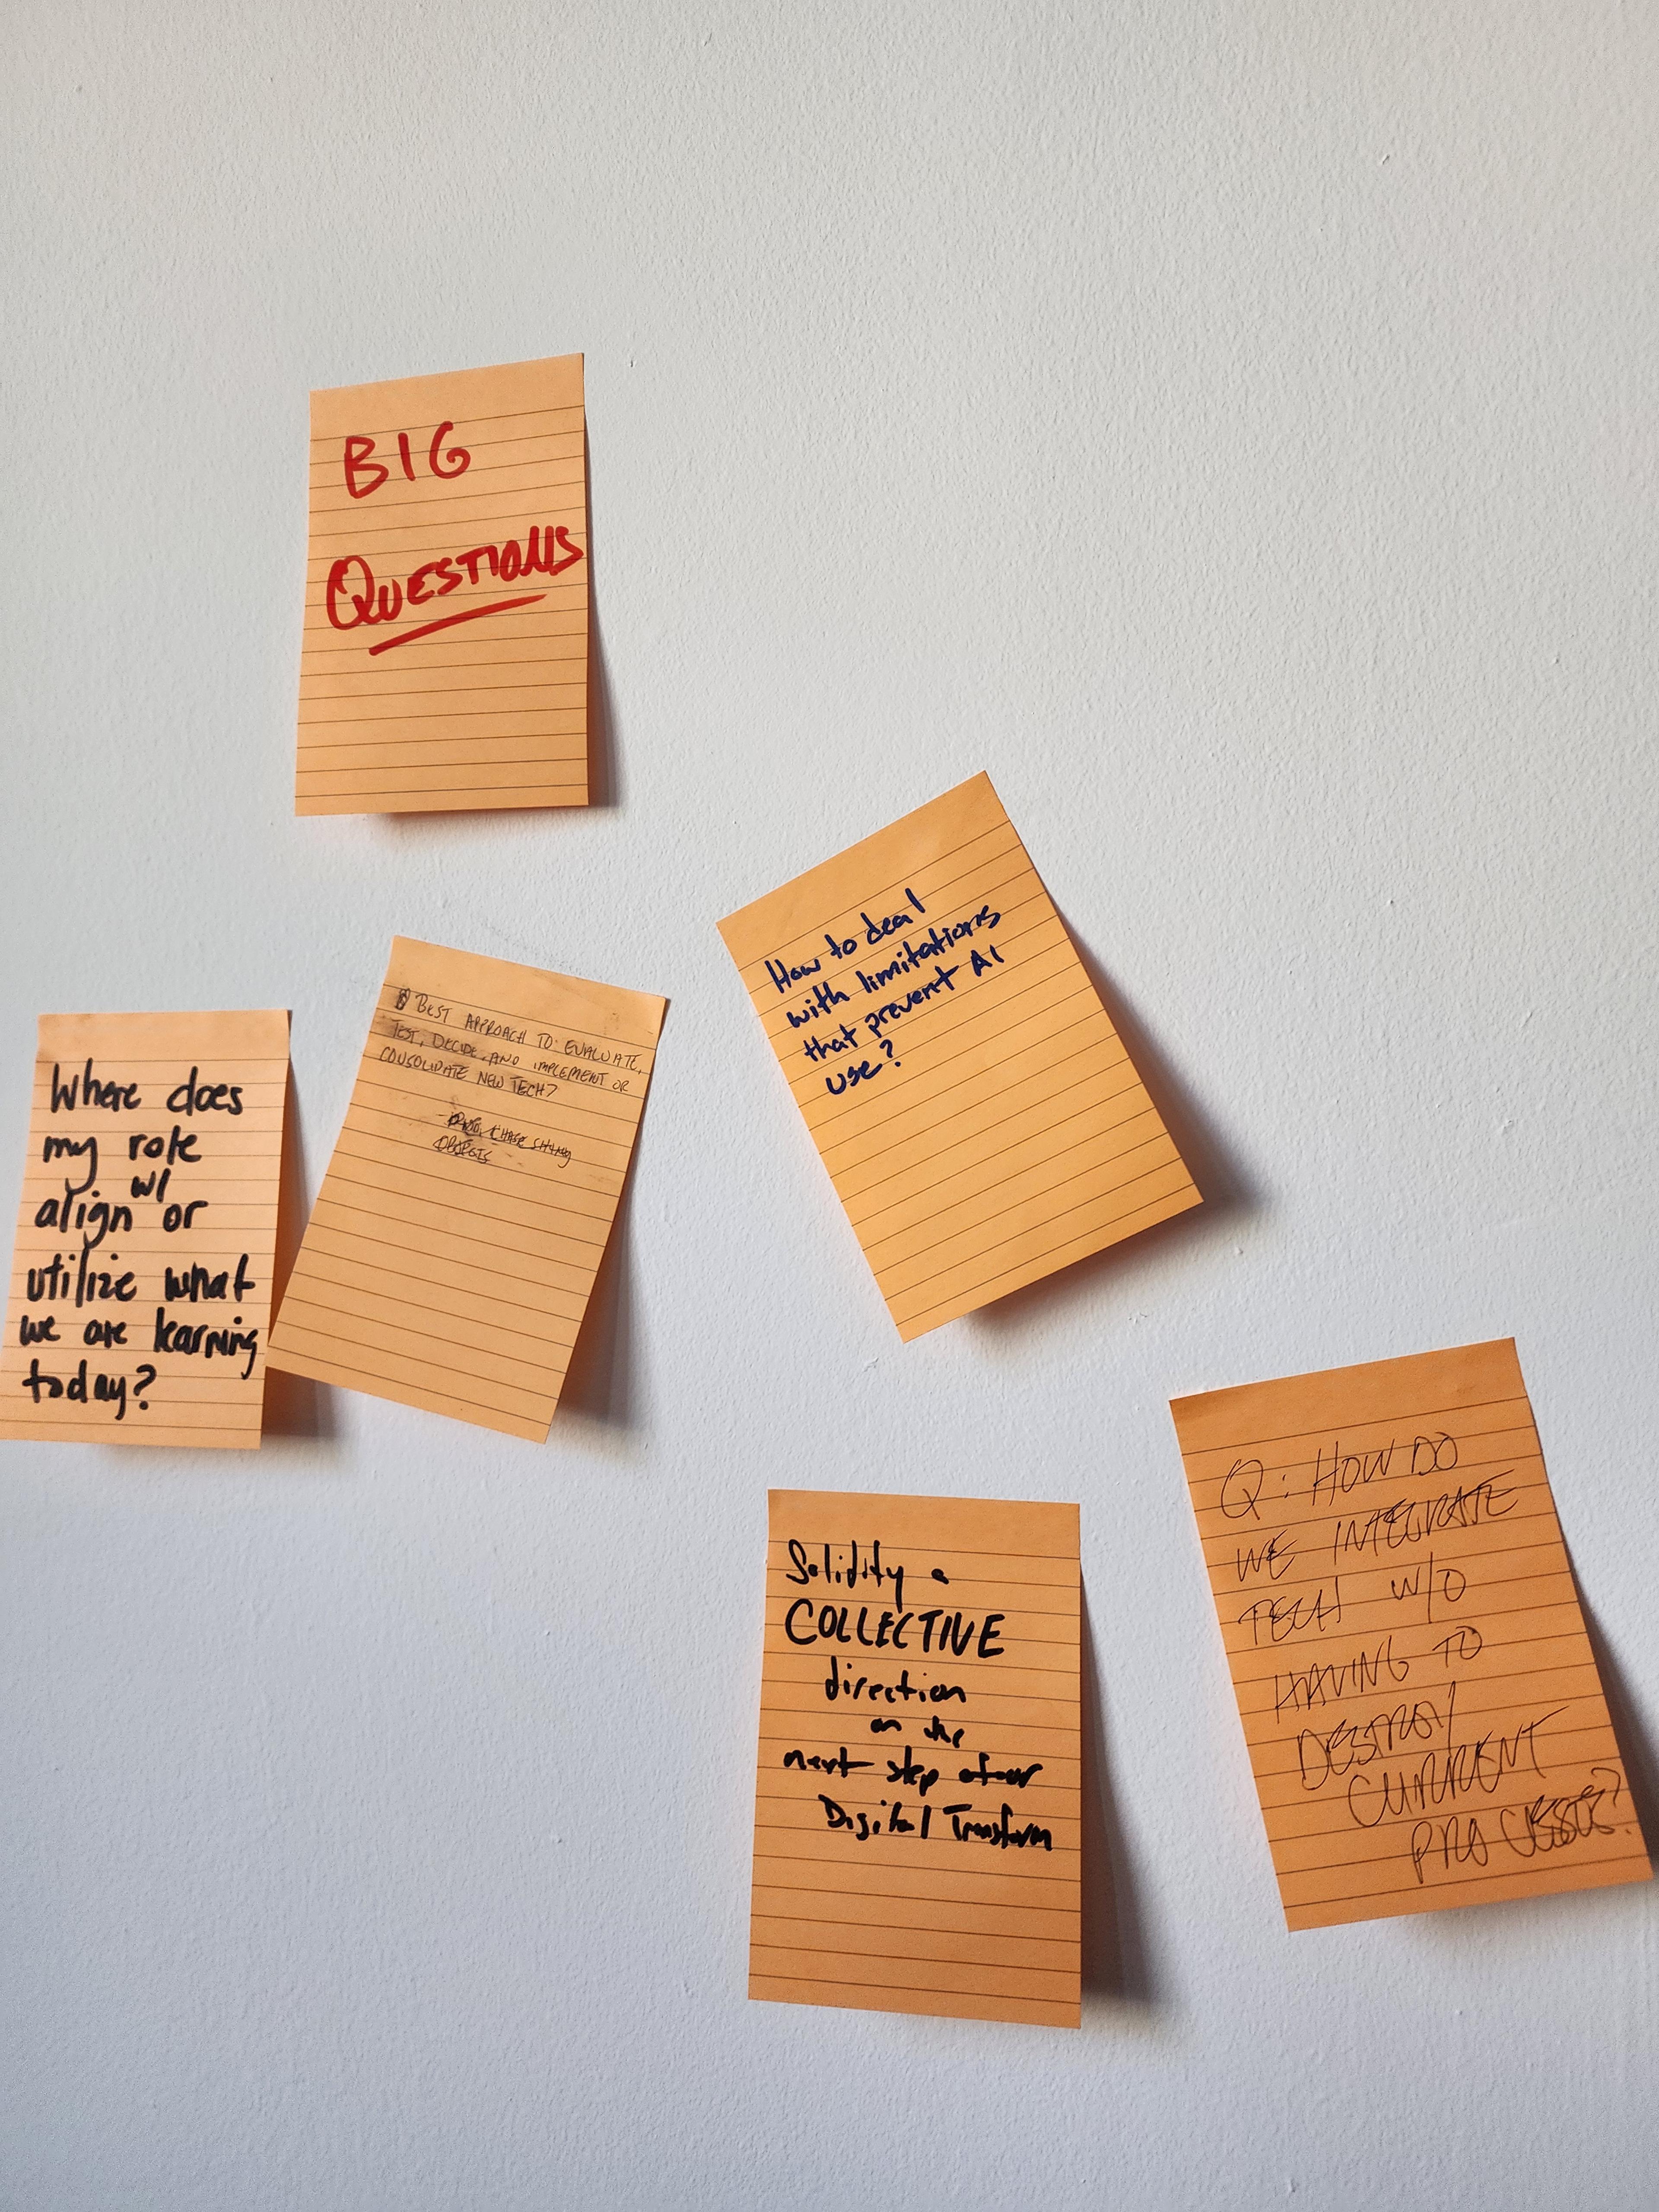 BIG
QUESTIONS
Where does
my role
w/
align or
utilize what
we are learning
today?
BEST APPROACH TO: EVALUATE,
TEST, DECIDE, AND IMPLEMENT OR
CONSOLIDATE NEW TECH?
CHASE SHINY
OBJECTS
How to deal
with limitations
that prevent AI
use?
Solidify a
COLLECTIVE
direction
on the
next step of our
Digital Transform
Q: HOW DO
WE INTEGRATE
TECH W/O
HAVING TO
DESTROY
CURRENT
PROCESSES?